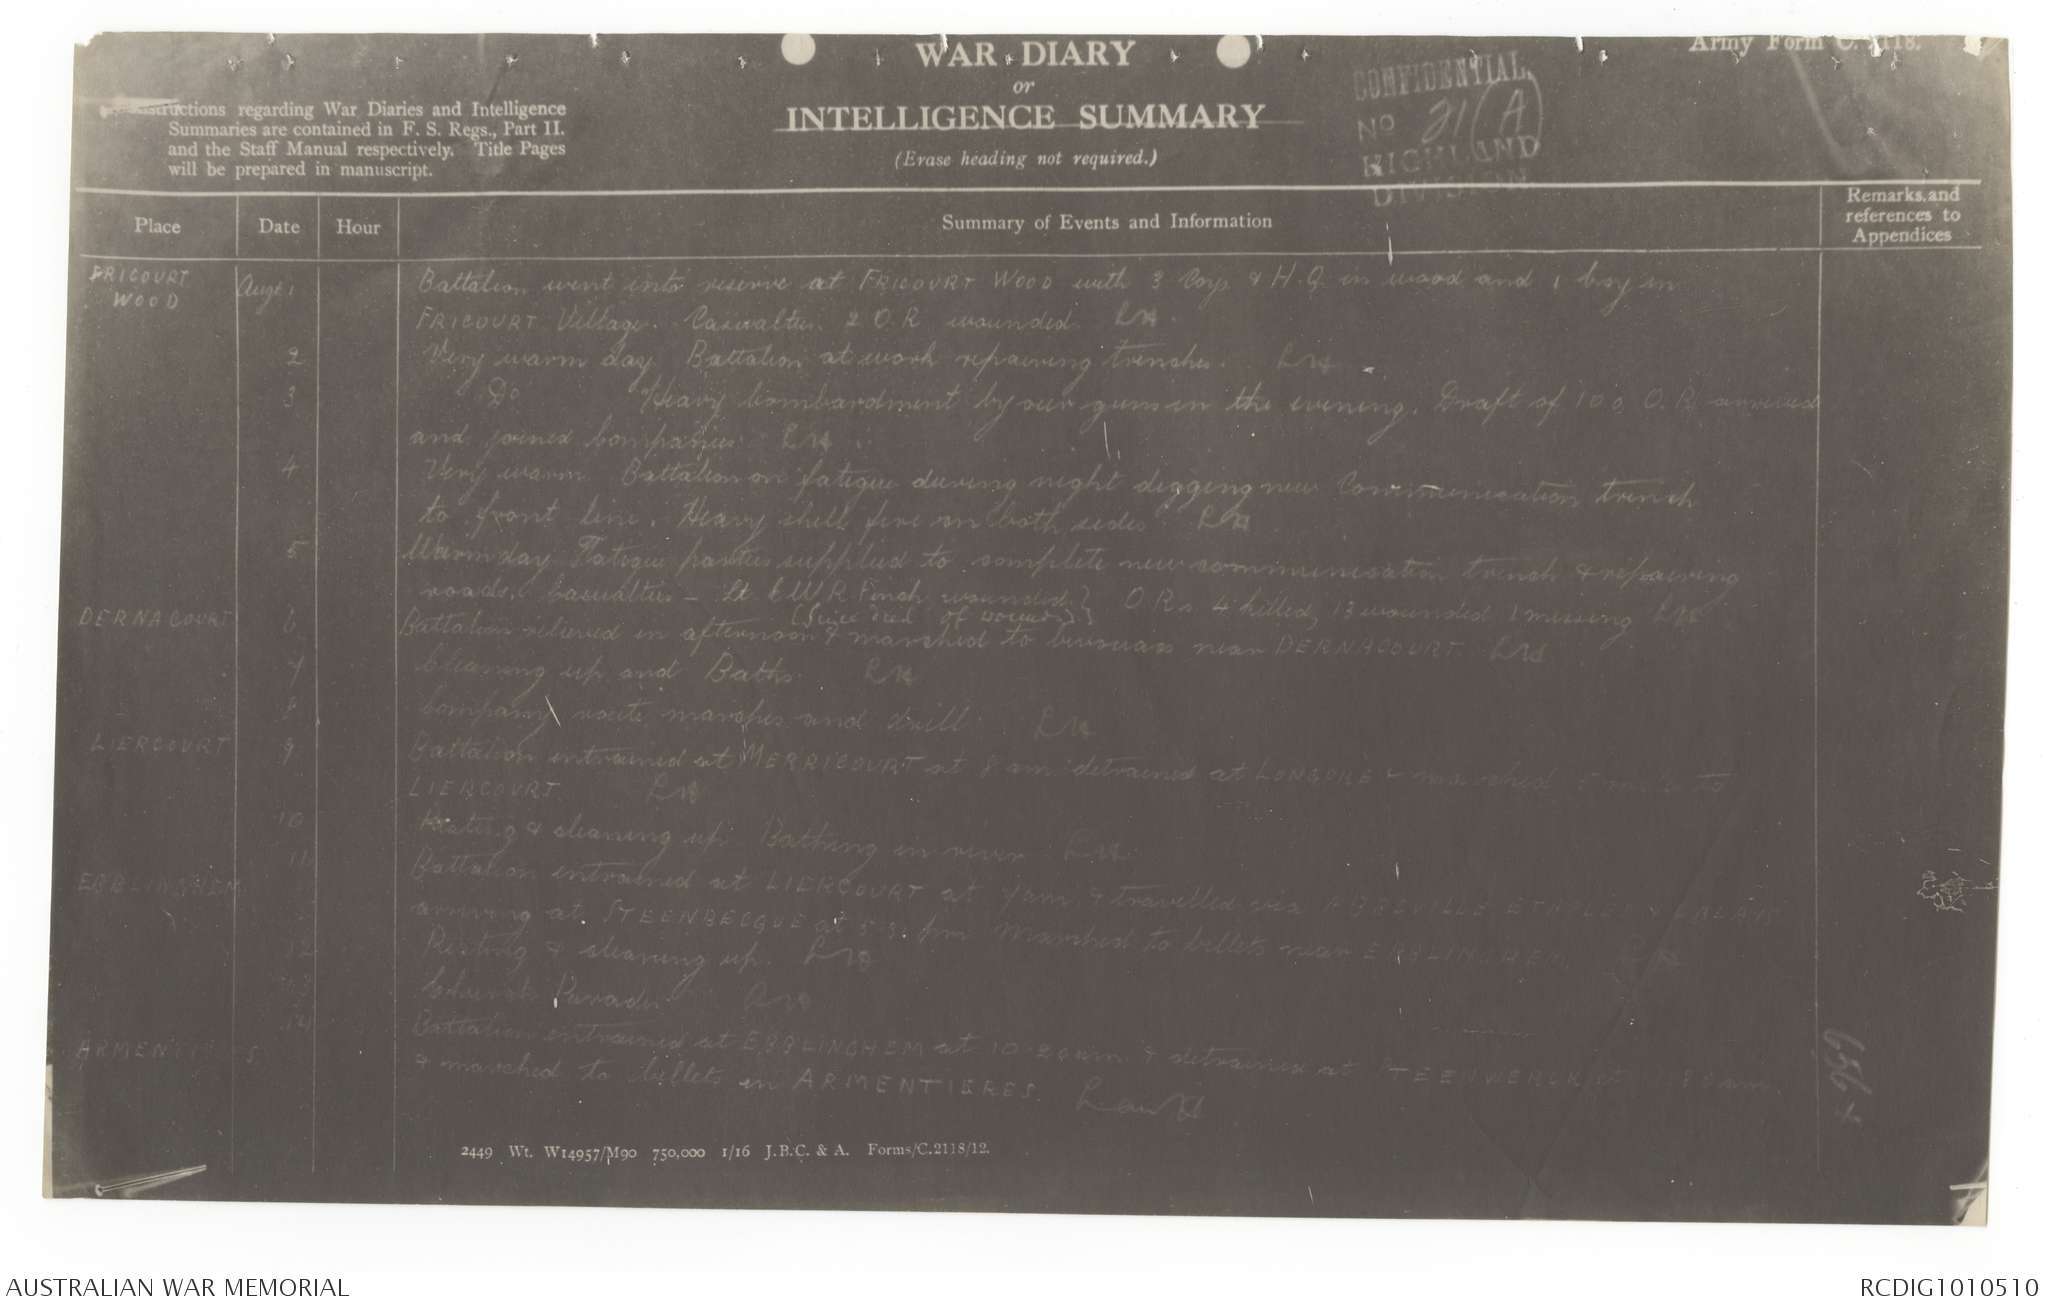 Army Form C. 2118.
WAR DIARY
or
INTELLIGENCE SUMMARY
(Erase heading not required.)
Instructions regarding War Diaries and Intelligence
Summaries are contained in F. S. Regs., Part II.
and the Staff Manual respectively. Title Pages
will be prepared in manuscript.
CONFIDENTIAL.
No 21(A)
HIGHLAND
DIVISION.
Place Date Hour Summary of Events and Information Remarks and references to Appendices
FRICOURT WOOD Augt 1 Battalion went into reserve at FRICOURT WOOD with 3 Coys & H.Q. in wood and 1 Coy in
FRICOURT Village. Casualties 2 O.R. wounded.
2 Very warm day Battalion at work repairing trenches.
3 Do Heavy bombardment by our guns in the evening. Draft of 100 O.R. arrived
and joined Companies.
4 Very warm Battalion on fatigue during night digging new Communication trench
to front line. Heavy shell fire on both sides
5 Warm day Fatigue parties supplied to complete new communication trench & repairing
roads. Casualties - Lt E W R Finch wounded O.Rs 4 killed, 13 wounded 1 missing
(Since died of wounds)
DERNACOURT 6 Battalion relieved in afternoon & marched to bivouacs near DERNACOURT
7 Cleaning up and Baths.
8 Company route marches and drill
LIERCOURT 9 Battalion entrained at MERRICOURT at 8 am detrained at LONGPRE & marched 5 miles to
LIERCOURT
10 Resting & cleaning up Bathing in river
EBBLINGHEM 11 Battalion entrained at LIERCOURT at 7 am & travelled via ABBEVILLE ETAPLES & CALAIS
arriving at STEENBECQUE at 5-3 pm Marched to billets near EBBLINGHEM
12 Resting & cleaning up.
13 Church Parades
ARMENTIERES 14 Battalion entrained at EBBLINGHEM at 10-20 am & detrained at STEENWERCK at 30 am
& marched to billets in ARMENTIERES.
656
2449 Wt. W14957/M90 750,000 1/16 J.B.C. & A. Forms/C.2118/12.
AUSTRALIAN WAR MEMORIAL
RCDIG1010510